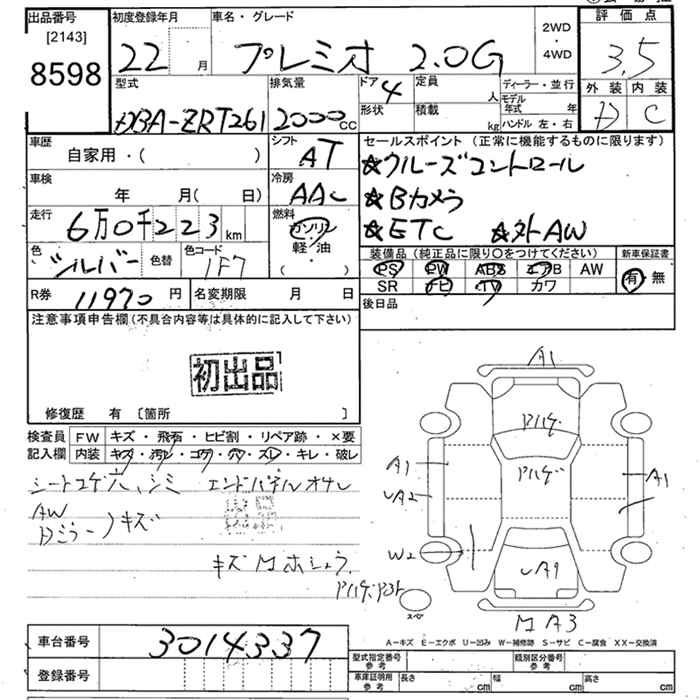 出品番号 初度登録年月 車名・グレード 2WD・4WD 評価点
[2143]
8598 22 月 プレミオ 2.0G 3.5
型式 排気量 ドア 4 定員 人 ディーラー・並行 外装 内装
DBA-ZRT261 2000cc 形状 積載 kg モデル年式 年 ハンドル 左・右 D C
車歴 シフト セールスポイント(正常に機能するものに限ります)
自家用・( ) AT ☆クルーズコントロール
車検 冷房 ☆Bカメラ
年 月( 日) AAC
走行 燃料 ☆ETC ☆外AW
6万0千223km ガソリン
軽・油
( )
色 シルバー 色替 色コード 1F7
装備品(純正品に限り○をつけてください) 新車保証書
PS PW ABS エアB AW 有・無
SR ナビ TV カワ
R券 11970円 名変期限 月 日 後日品
注意事項申告欄(不具合内容等は具体的に記入して下さい)
初出品
修復歴 有 [箇所 ]
検査員 FW キズ・飛石・ヒビ割・リペア跡・×要
記入欄 内装 キズ・汚レ・コゲ・穴・スレ・キレ・破レ
シートコゲ穴、シミ エンドパネルオサレ
AW
Dミラー キズ
キズ
A1
アハゲ
アハゲ
A1 A1
UA2
W2
UA1
スペア
A3
A-キズ E-エクボ U-凹み W-補修跡 S-サビ C-腐食 XX-交換済
車台番号 3014337
型式指定番号 参考 類別区分番号 参考
登録番号
車庫証明用 参考 長さ cm 幅 cm 高さ cm